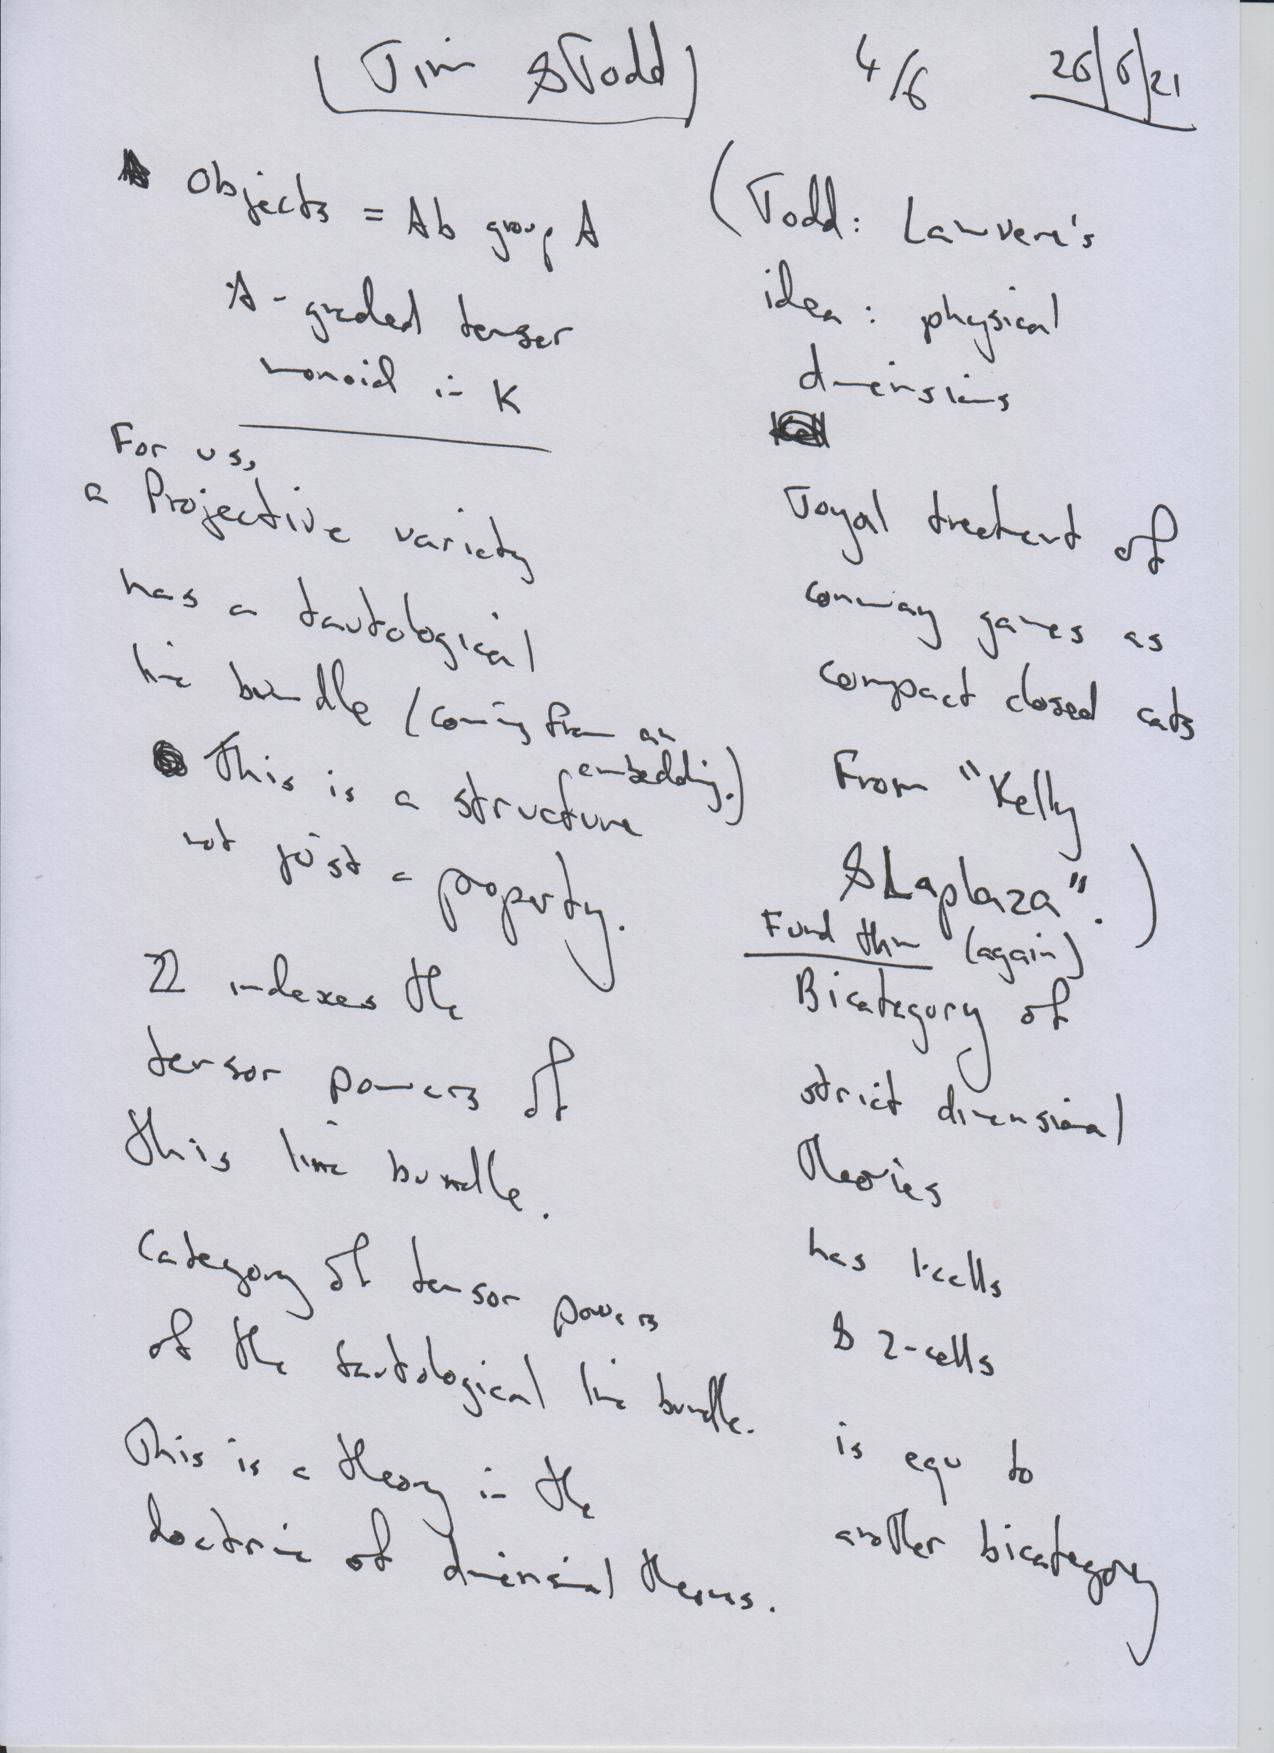 Jim & Todd 4/6 26/6/21
Objects = Ab group A
A-graded tensor
monoid in K
For us,
a Projective variety
has a tautological
line bundle (coming from an
embedding.)
This is a structure
not just a property.
ℤ indexes the
tensor powers of
this line bundle.
Category of tensor powers
of the tautological line bundle.
This is a theory in the
doctrine of dimensional theories.
(Todd: Lawvere's
idea: physical
dimensions
Joyal treatment of
conway games as
compact closed cats
From "Kelly
& Laplaza".)
Fund thm (again)
Bicategory of
strict dimensional
theories
has 1-cells
& 2-cells
is equ to
another bicategory